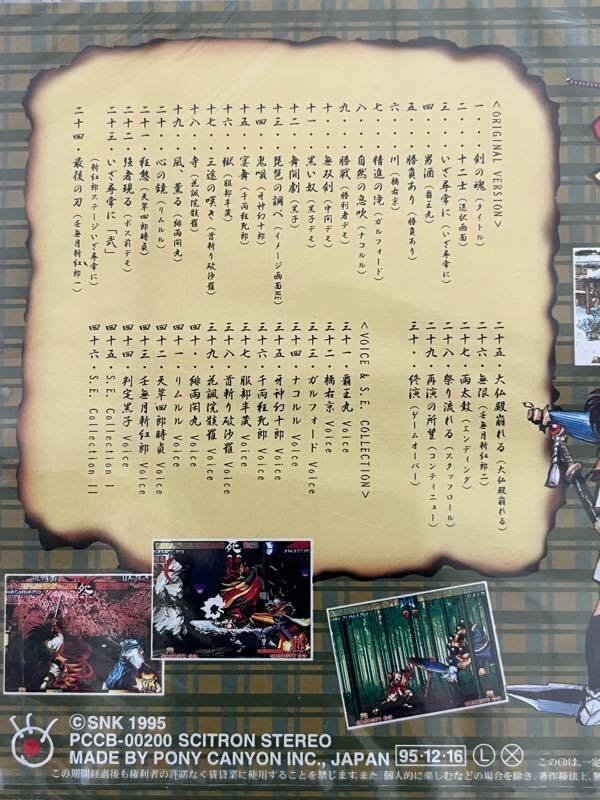 <ORIGINAL VERSION>
一・・・剣の魂(タイトル)
二・・・十二士(選択画面)
三・・・いざ尋常に(いざ尋常に)
四・・・男酒(覇王丸)
五・・・勝負あり(勝負あり)
六・・・川(橘右京)
七・・・精進の滝(ガルフォード)
八・・・自然の息吹(ナコルル)
九・・・勝戦(勝利者デモ)
十・・・無双剣(中間デモ)
十一・・・黒い奴(黒子デモ)
十二・・・舞闘劇(黒子)
十三・・・琵琶の調べ(イメージ画面ME)
十四・・・鬼哭(牙神幻十郎)
十五・・・宴舞(千両狂死郎)
十六・・・獄(服部半蔵)
十七・・・三途の嘆き(首斬り破沙羅)
十八・・・寺(花諷院骸羅)
十九・・・風、薫る(緋雨閑丸)
二十・・・心の鏡(リムルル)
二十一・・・狂愁(天草四郎時貞)
二十二・・・強者現る(ボス前デモ)
二十三・・・いざ尋常に「弐」
(斬紅郎ステージいざ尋常に)
二十四・・・最後の刃(壬無月斬紅郎一)
二十五・・・大仏殿崩れる(大仏殿崩れる)
二十六・・・無限(壬無月斬紅郎二)
二十七・・・両太鼓(エンディング)
二十八・・・祭り流れる(スタッフロール)
二十九・・・再演の所望(コンティニュー)
三十・・・終演(ゲームオーバー)
<VOICE & S.E. COLLECTION>
三十一・覇王丸 Voice
三十二・橘右京 Voice
三十三・ガルフォード Voice
三十四・ナコルル Voice
三十五・牙神幻十郎 Voice
三十六・千両狂死郎 Voice
三十七・服部半蔵 Voice
三十八・首斬り破沙羅 Voice
三十九・花諷院骸羅 Voice
四十・緋雨閑丸 Voice
四十一・リムルル Voice
四十二・天草四郎時貞 Voice
四十三・壬無月斬紅郎 Voice
四十四・判定黒子 Voice
四十五・S.E. Collection I
四十六・S.E. Collection II
©SNK 1995
PCCB-00200 SCITRON STEREO
MADE BY PONY CANYON INC., JAPAN 95・12・16 L X
このCDは、一定
この期間経過後も権利者の許諾なく賃貸業に使用することを禁じます。また、個人的に楽しむなどの場合を除き、著作権法上、無